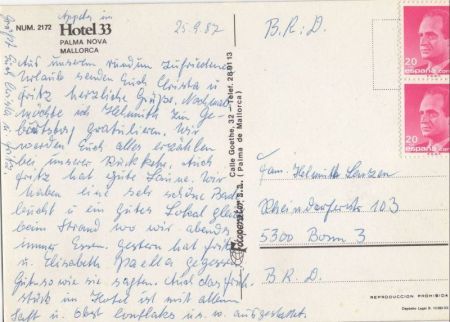 Appda in
NUM. 2172
Hotel 33
PALMA NOVA
MALLORCA
25.9.87
Aus unserem rundum zufriedenen
Urlaub senden Euch Christa u
Fritz herzliche Grüße. Nochmal
möchte ich Helmuth zum Ge-
burtstag gratulieren. Wir
werden Euch alles erzählen
bei unserer Rückkehr, Auch
Fritz hat gute Laune. Wir
haben eine sehr schöne Bade
bucht u ein gutes Lokal gleich
beim Strand wo wir abends
immer Essen. Gestern hat Fritz
u. Elisabeth Paella gegessen
Gut so wie sie sagten. Auch das Früh-
stück im Hotel ist mit allem
Saft u. Obst Conflakes u.s.w. ausgestattet.
Calle Goethe, 32 - Telef. 28 91 13
(Palma de Mallorca)
Fotoperator s.a.
B.R.D.
20
españa
20
españa
Fam. Helmuth
Rheindorferstr 103
5300 Bonn 3
B.R.D.
REPRODUCCION PROHIBIDA